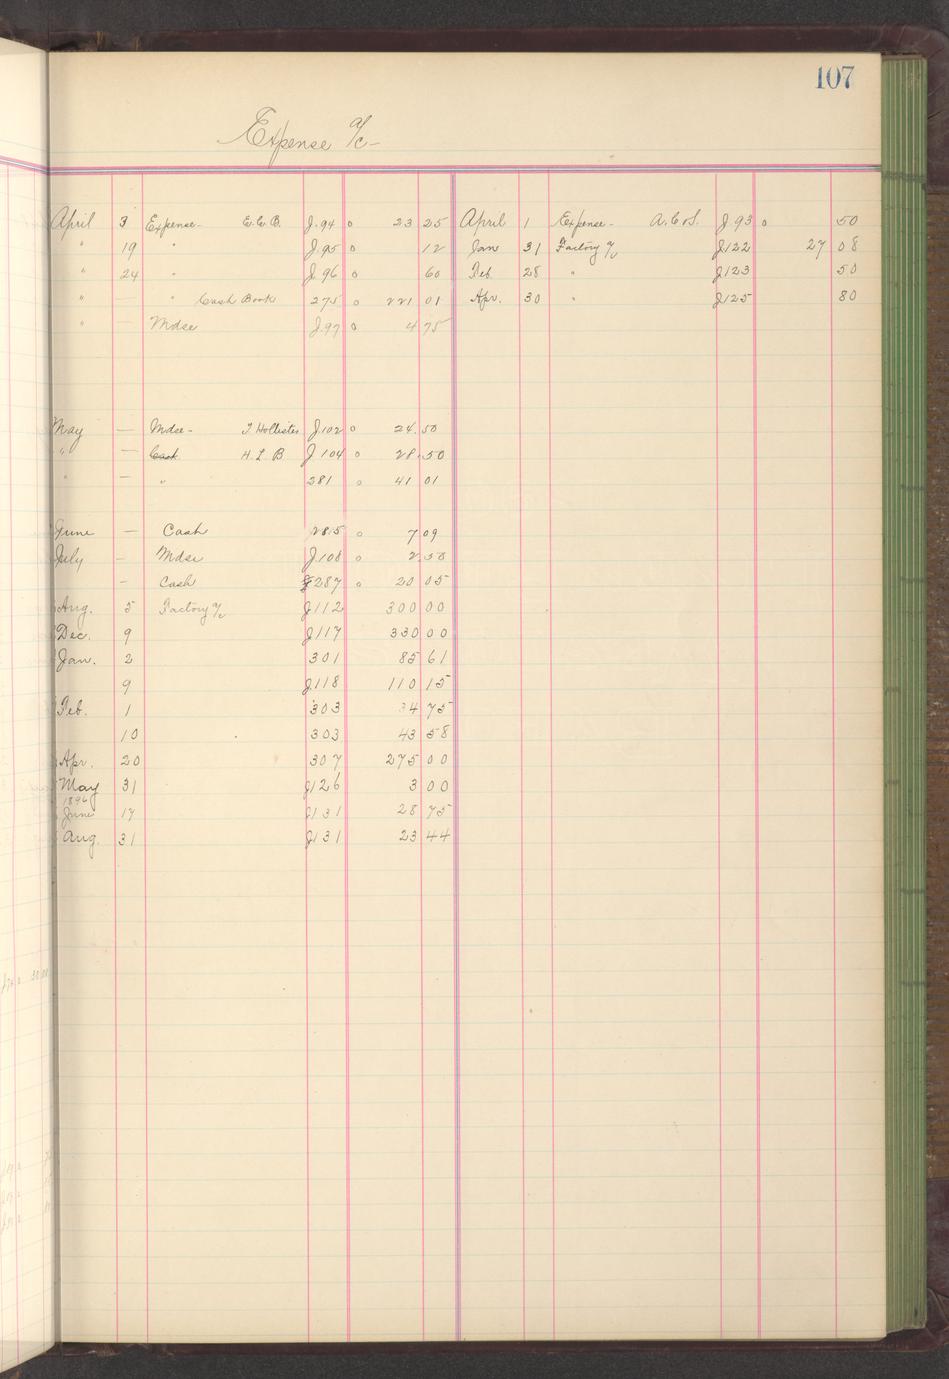 107
Expense a/c
April 3 Expense- E.C.B. J.94 o 23 25 April 1 Expense- J.93 o 50
" 19 " J.95 o 12 Jan 31 Factory a/c J122 27 08
" 24 " J.96 o 60 Feb 28 " J123 50
" — " Cash Book 275 o 221 01 Apr. 30 " J125 80
" — Mdse J.97 o 4 75
May — Mdse- T Hollister J102 o 24.50
" — Cash H. L B J 104 o 28.50
" — " 281 o 41 01
June — Cash 285 o 7 09
July – Mdse J.108 o 2.50
– Cash 287 o 20 05
Aug. 5 Factory a/c J112 300 00
Dec. 9 J117 330 00
Jan. 2 301 85 61
9 J.118 110 15
Feb. 1 303 34 75
10 303 43 58
Apr. 20 307 275 00
May 31 J126 3 00
1896
June 17 J131 28 75
Aug. 31 J131 23 44